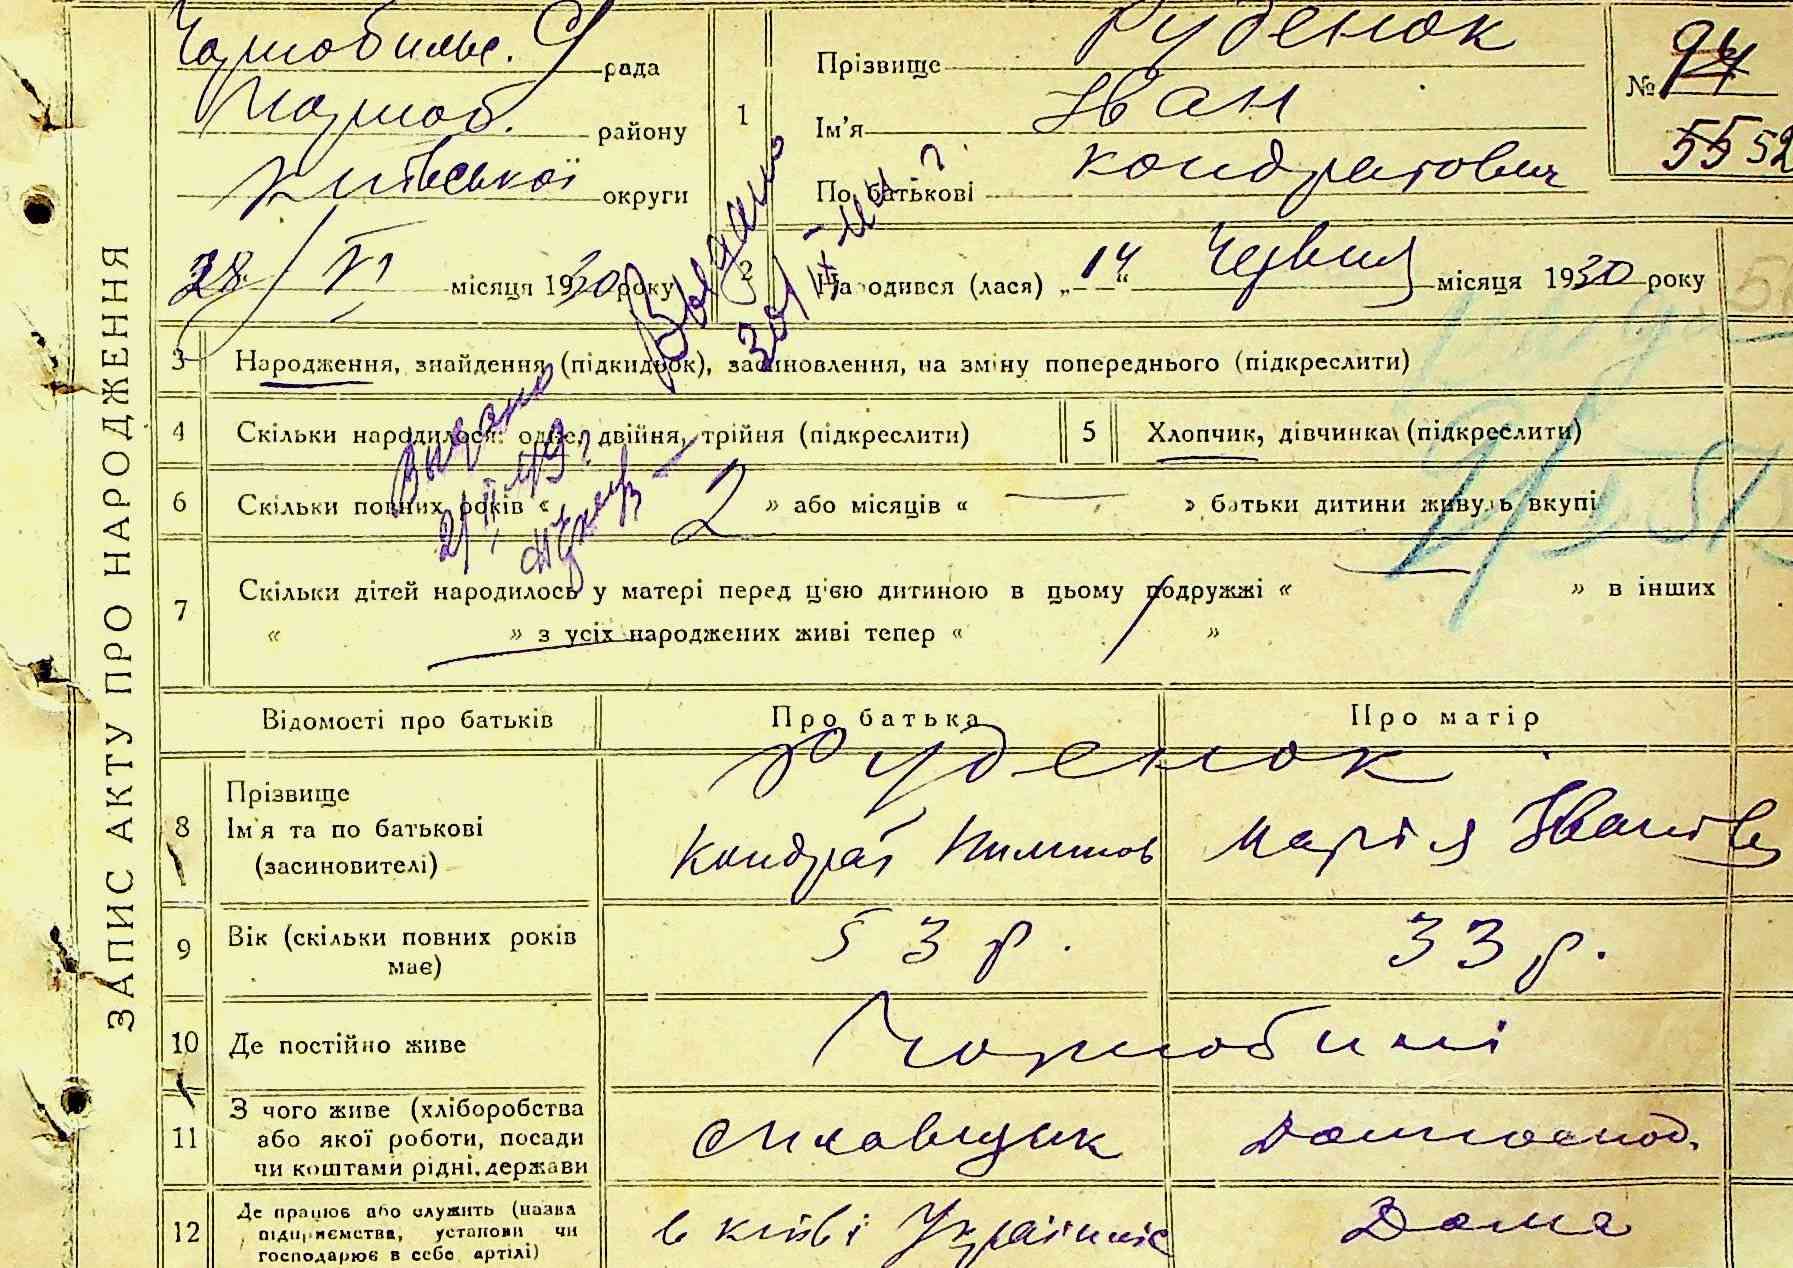 ЗАПИС АКТУ ПРО НАРОДЖЕННЯ
Чорнобильс. рада
Чорноб. району
Київської округи
28/VI місяця 1930 року
1 Прізвище Руденок
Ім'я Іван
По батькові Кондратович
№ 94
5552
2 Народився (лася) „14“ Червня місяця 1930 року
3 Народження, знайдення (підкидьок), засиновлення, на зміну попереднього (підкреслити)
4 Скільки народилося: одне, двійня, трійня (підкреслити)
5 Хлопчик, дівчинка (підкреслити)
6 Скільки повних років « 2 » або місяців « — » батьки дитини живуть вкупі
7 Скільки дітей народилось у матері перед ц'єю дитиною в цьому подружжі « » в інших
« » з усіх народжених живі тепер « »
Выдано
Выдано
Відомості про батьків Про батька Про матір
8 Прізвище Руденок
Ім'я та по батькові Кондрат Марія Іванів
(засиновителі)
9 Вік (скільки повних років має) 53 р. 33 р.
10 Де постійно живе Чорнобилі
11 З чого живе (хліборобства
або якої роботи, посади
чи коштами рідні, держави
Сплавщик Домогоспод.
12 Де працює або служить (назва
підприємства, установи чи
господарює в себе артілі)
в Київі Дома